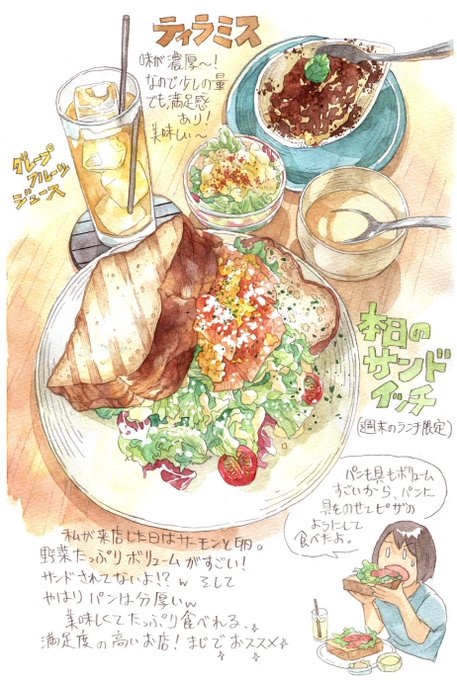 ティラミス
味が濃厚〜!
なので少しの量
でも満足感
あり!
美味しい〜
グレープ
フルーツ
ジュース
本日の
サンド
イッチ
(週末のランチ限定)
パンも具もボリューム
すごいから、パンに
具をのせてピザの
ようにして
食べたよ。
私が来店した日はサーモンと卵。
野菜たっぷりボリュームがすごい!
サンドされてないよ!? w そして
やはりパンは分厚いw
美味しくてたっぷり食べれる、
満足度の高いお店!まじでおススメ